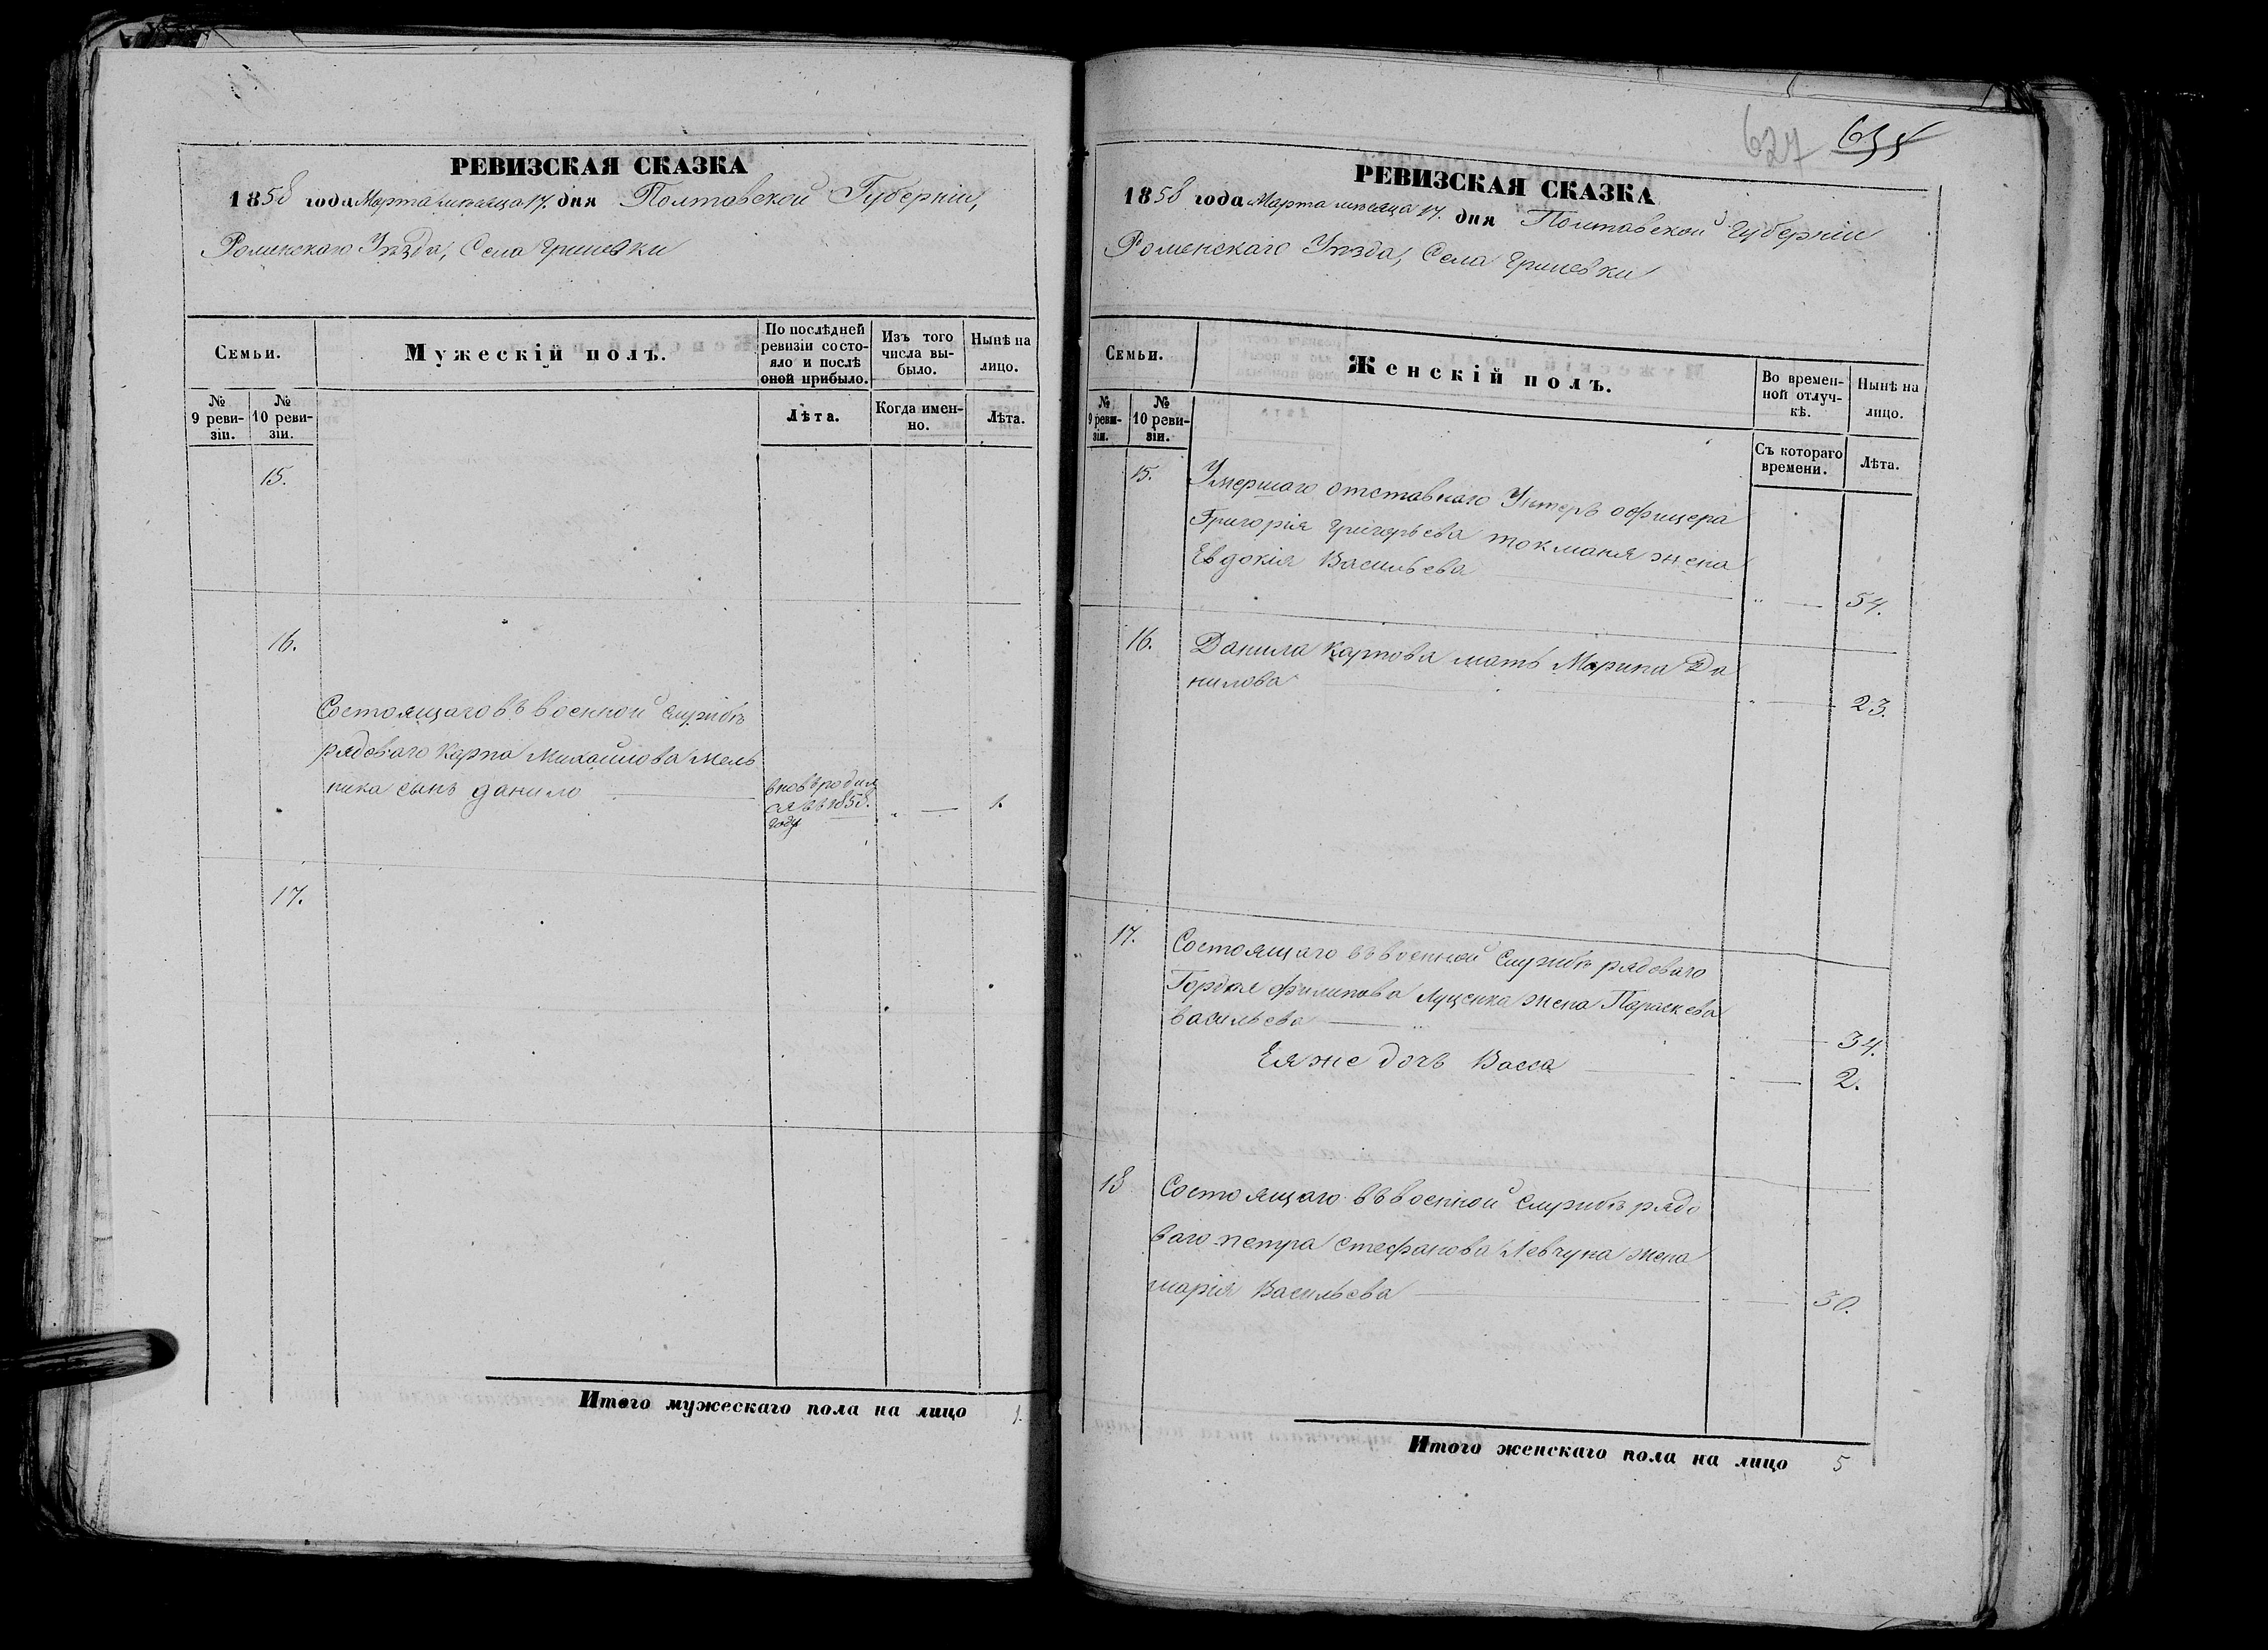 РЕВИЗСКАЯ СКАЗКА
1858 года Марта месяца 17. дня Полтавской Губерніи,
Роменскаго Уѣзда, Села Гриневки
Семьи.
Мужескій полъ.
По послѣдней ревизіи состояло и послѣ оной прибыло.
Изъ того числа выбыло.
Нынѣ на лицо.
№ 9 ревизіи.
№ 10 ревизіи.
Лѣта.
Когда именно.
Лѣта.
15.
16.
Состоящаго въ военной службѣ
рядоваго Карпа Михайлова Мель
ника сынъ Данило
вновь родил
ся въ 1858.
году
1.
17.
Итого мужескаго пола на лицо 1.
627 635
РЕВИЗСКАЯ СКАЗКА
1858 года Марта месяца 17. дня Полтавской Губерніи
Роменскаго Уѣзда, Села Гриневки
Семьи.
Женскій полъ.
Во временной отлучкѣ.
Нынѣ на лицо.
№ 9 ревизіи.
№ 10 ревизіи.
Съ котораго времени.
Лѣта.
15. Умершаго отставнаго Унтеръ офицера
Григорія Григорьева Токманя жена
Евдокія Васильева 54.
16. Данила Карпова мать Марина Да
нилова 23.
17. Состоящаго въ военной службѣ рядоваго
Гордѣя Филипова Луценка жена Параскева
Васильева 34.
Ея же дочь Васса 2.
18 Состоящаго въ военной службѣ рядо
ваго Петра Стефанова Левчуна жена
Марія Васильева 30.
Итого женскаго пола на лицо 5